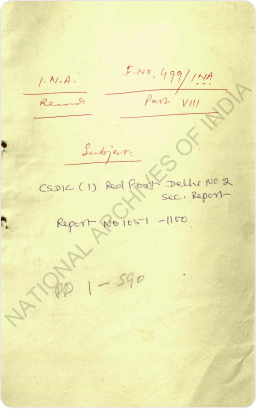 I.N.A. F.No. 499/INA
Records Part VIII
Subject.
CSDIC (I) Red Fort Delhi No 2
Sec. Report
Report No 1051 - 1100
PP 1 - 590
NATIONAL ARCHIVES OF INDIA